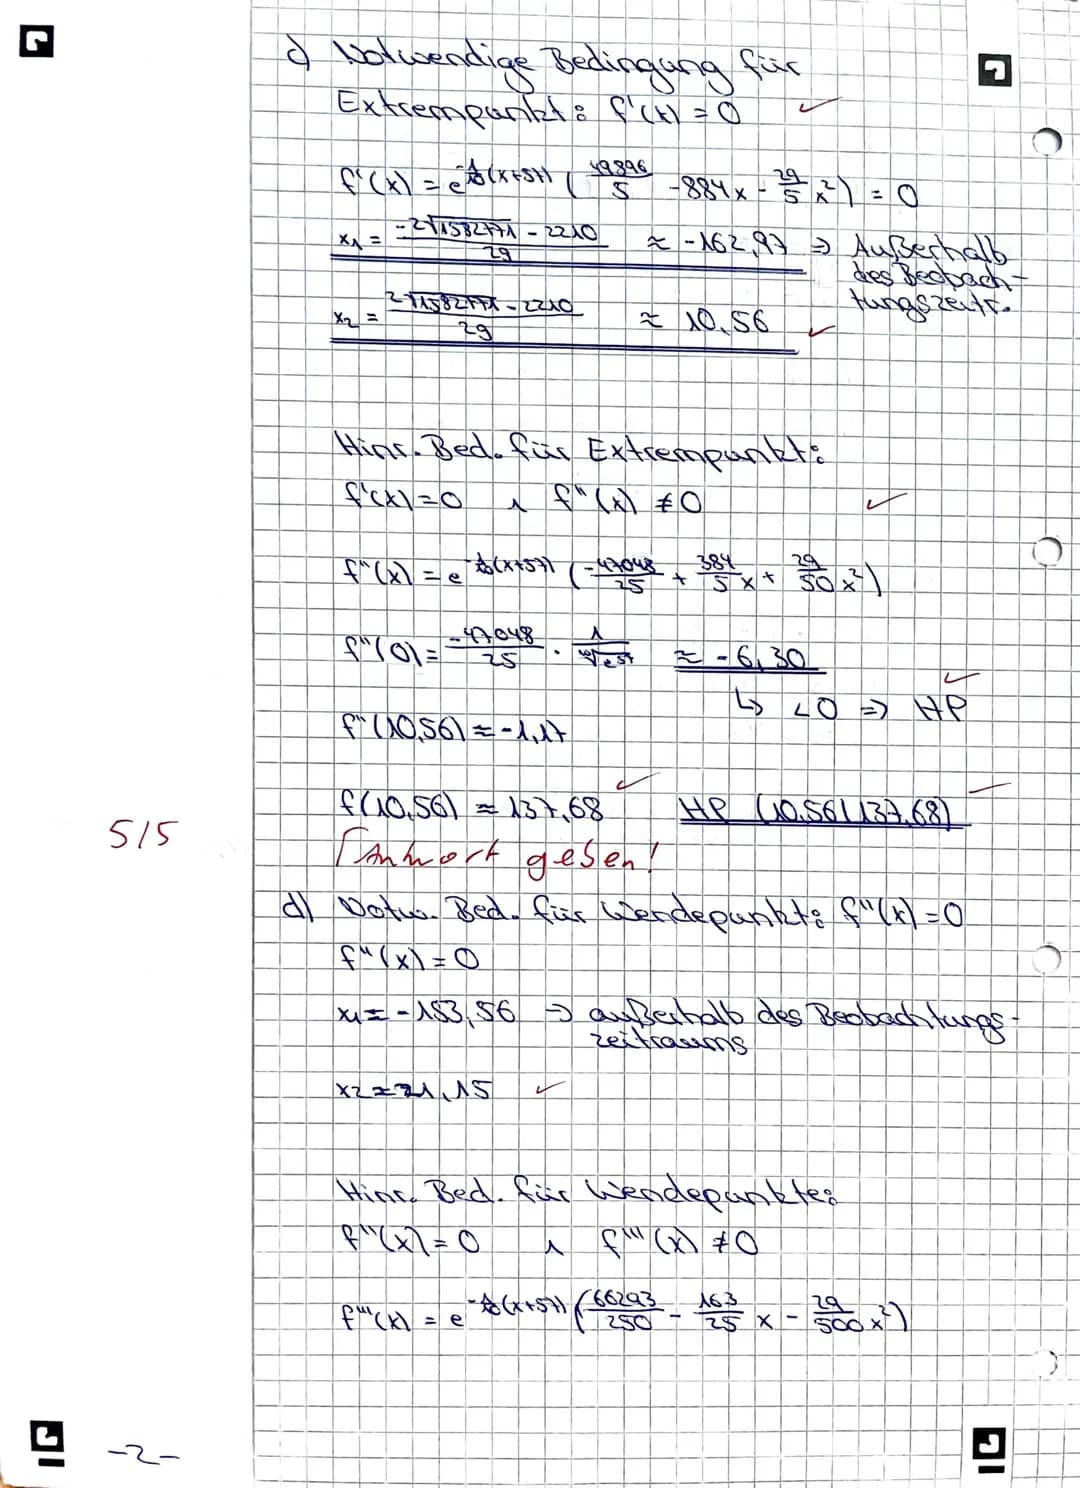 c) Notwendige Bedingung für
Extrempunkt: f'(x) = 0 ✓
f'(x) = e^(-1/10(x+57)) (49896/5 - 884x - 29/5 x²) = 0
x₁ = (-2√1582771 - 2210)/29 ≈ -162,97 ⇒ Außerhalb
des Beobach-
tungszeitr.
x₂ = (2√1582771 - 2210)/29 ≈ 10,56 ✓
Hinr. Bed. für Extrempunkt:
f'(x) = 0 ∧ f''(x) ≠ 0 ✓
f''(x) = e^(-1/10(x+57)) (-47048/25 + 384/5 x + 29/50 x²)
f''(0) = -47048/25 · 1/¹⁰√e⁵⁷ ≈ -6,30 ✓
↳ <0 ⇒ HP
f''(10,56) ≈ -1,17
f(10,56) ≈ 137,68 ✓ HP (10,56|137,68)
5/5
Γ Antwort geben!
d) Notw. Bed. für Wendepunkt: f''(x) = 0
f''(x) = 0
x₁ = -153,56 ⇒ außerhalb des Beobachtungs-
zeitraums
x2 ≈ 21,15 ✓
Hinr. Bed. für Wendepunkte:
f''(x) = 0 ∧ f'''(x) ≠ 0
f'''(x) = e^(-1/10(x+57)) (66293/250 - 163/25 x - 29/500 x²)
-2-